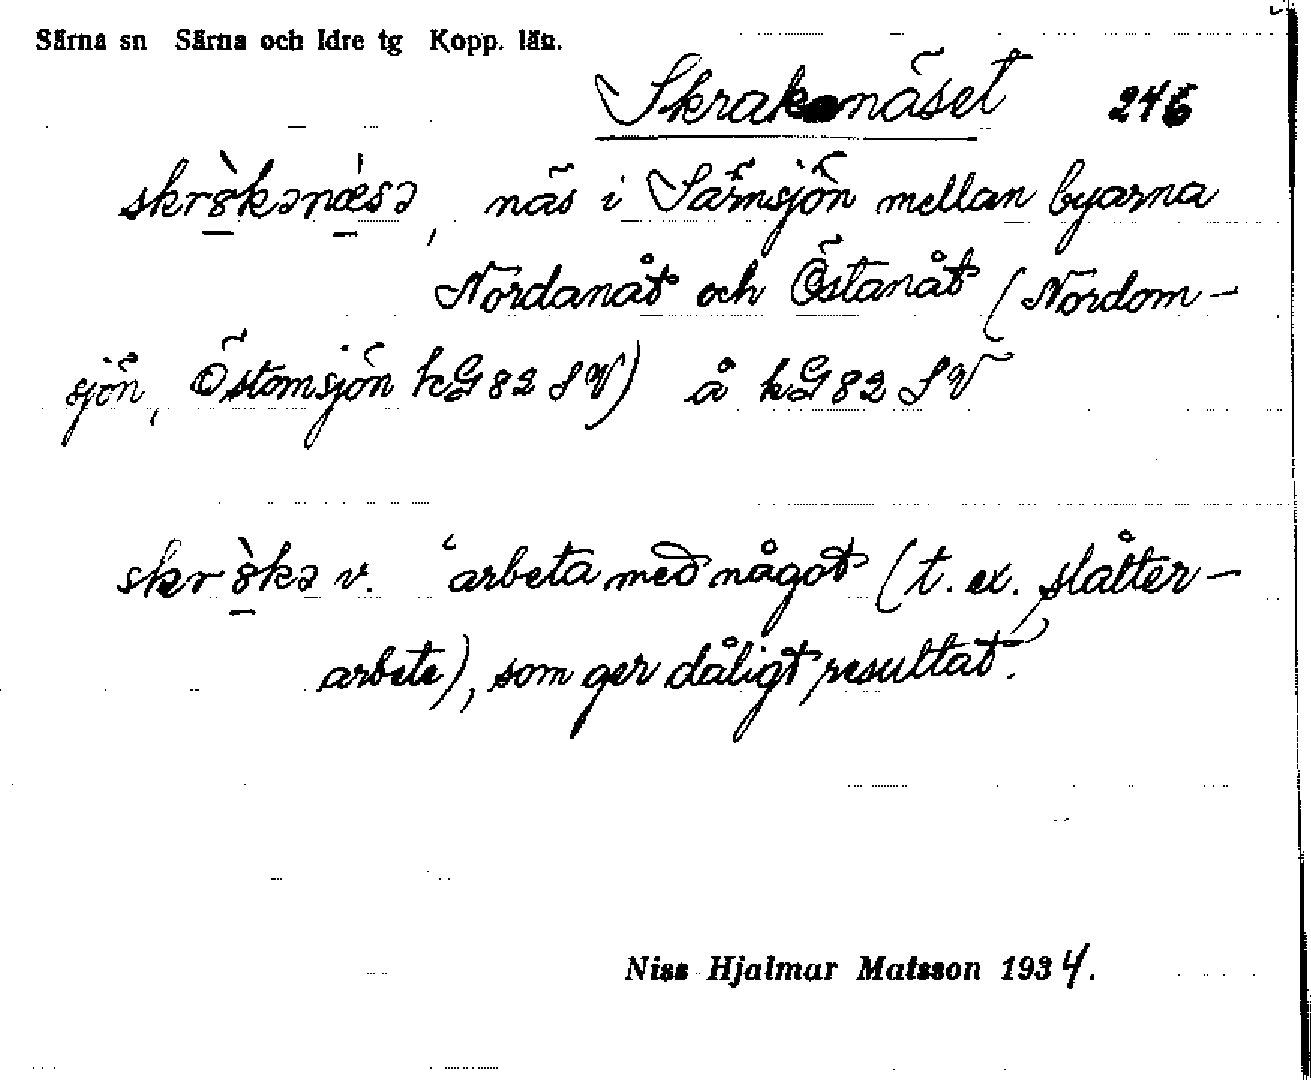 Särna sn Särna och Idre tg Kopp. län.
Skraknäset 246
skr8̀kənǽsə, näs i Särnsjön mellan byarna
Nordanåt och Östanåt (Nordom-
sjön, Östomsjön kG 82 SV) å kG 82 SV
skr8̀kə v. ‘arbeta med något (t. ex. slåtter-
arbete), som ger dåligt resultat’.
Niss Hjalmar Matsson 1934.